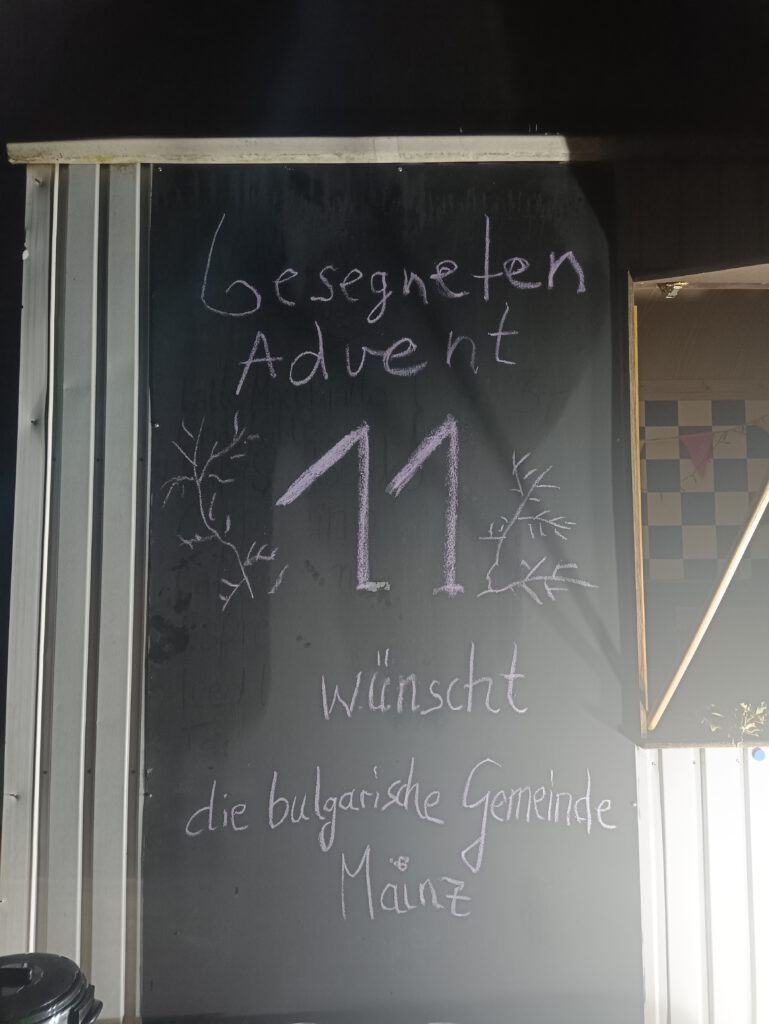 Gesegneten
Advent
11
wünscht
die bulgarische Gemeinde
Mainz